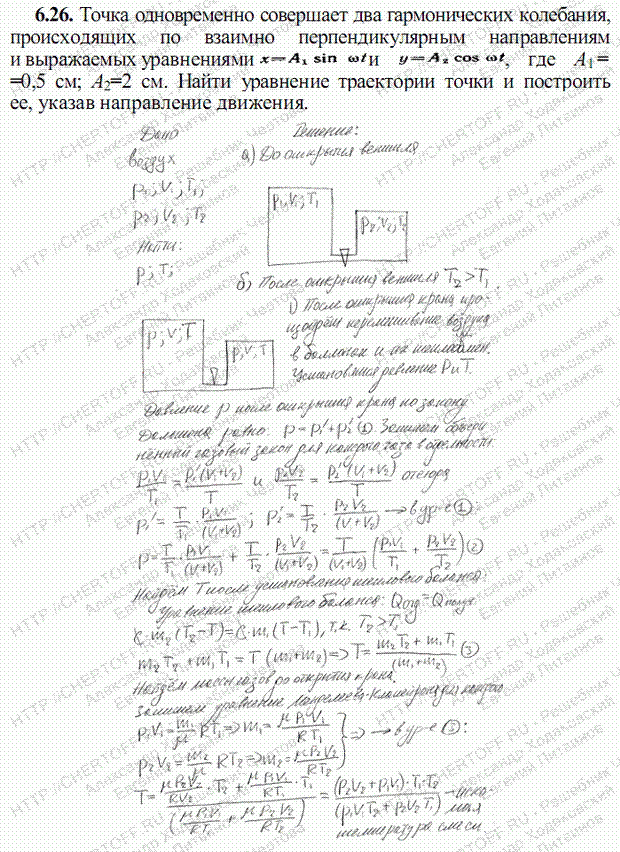 6.26. Точка одновременно совершает два гармонических колебания,
происходящих по взаимно перпендикулярным направлениям
и выражаемых уравнениями x=A₁ sin ωt и y=A₂ cos ωt, где A₁=
=0,5 см; A₂=2 см. Найти уравнение траектории точки и построить
ее, указав направление движения.
Дано Решение:
воздух а) До открытия вентиля
p₁; V₁; T₁;
p₂; V₂; T₂
p₁,V₁;T₁ p₂;V₂;T₂
Найти:
p; T;
б) После открытия вентиля T₂>T₁.
1) После открытия крана про-
p;V;T p;V;T
исходит перемешивание воздуха
в баллонах и их теплообмен.
Установятся давление p и T.
Давление p после открытия крана по закону
Дальтона равно: p=p₁'+p₂' ① Запишем объеди-
нённый газовый закон для каждого газа в отдельности:
p₁V₁/T₁ = p₁'(V₁+V₂)/T и p₂V₂/T₂ = p₂'(V₁+V₂)/T отсюда
p₁' = T/T₁ · p₁V₁/(V₁+V₂); p₂' = T/T₂ · p₂V₂/(V₁+V₂) → в ур-е ①:
p = T/T₁ · p₁V₁/(V₁+V₂) + T/T₂ · p₂V₂/(V₁+V₂) = T/(V₁+V₂) (p₁V₁/T₁ + p₂V₂/T₂) ②
Найдём T после установления теплового баланса:
Уравнение теплового баланса: Qотд = Qполуч
C·m₂(T₂-T)=C·m₁(T-T₁), т.к. T₂>T₁
m₂T₂+m₁T₁=T(m₁+m₂) => T= (m₂T₂+m₁T₁)/(m₁+m₂) ③
Найдём массы газов до открытия крана.
Запишем уравнение Менделеева-Клапейрона для каждого
p₁V₁ = m₁/μ RT₁ => m₁ = μp₁V₁/RT₁
=> → в ур-е ③:
p₂V₂ = m₂/μ RT₂ => m₂ = μp₂V₂/RT₂
T = (μp₂V₂/RT₂ · T₂ + μp₁V₁/RT₁ · T₁)/(μp₁V₁/RT₁ + μp₂V₂/RT₂) = (p₂V₂+p₁V₁)·T₁·T₂/(p₁V₁T₂+p₂V₂T₁) - иско-
мая
температура смеси
HTTP://CHERTOFF.RU - Решебник Чертова
Александр Ходаковский
Евгений Литвинов